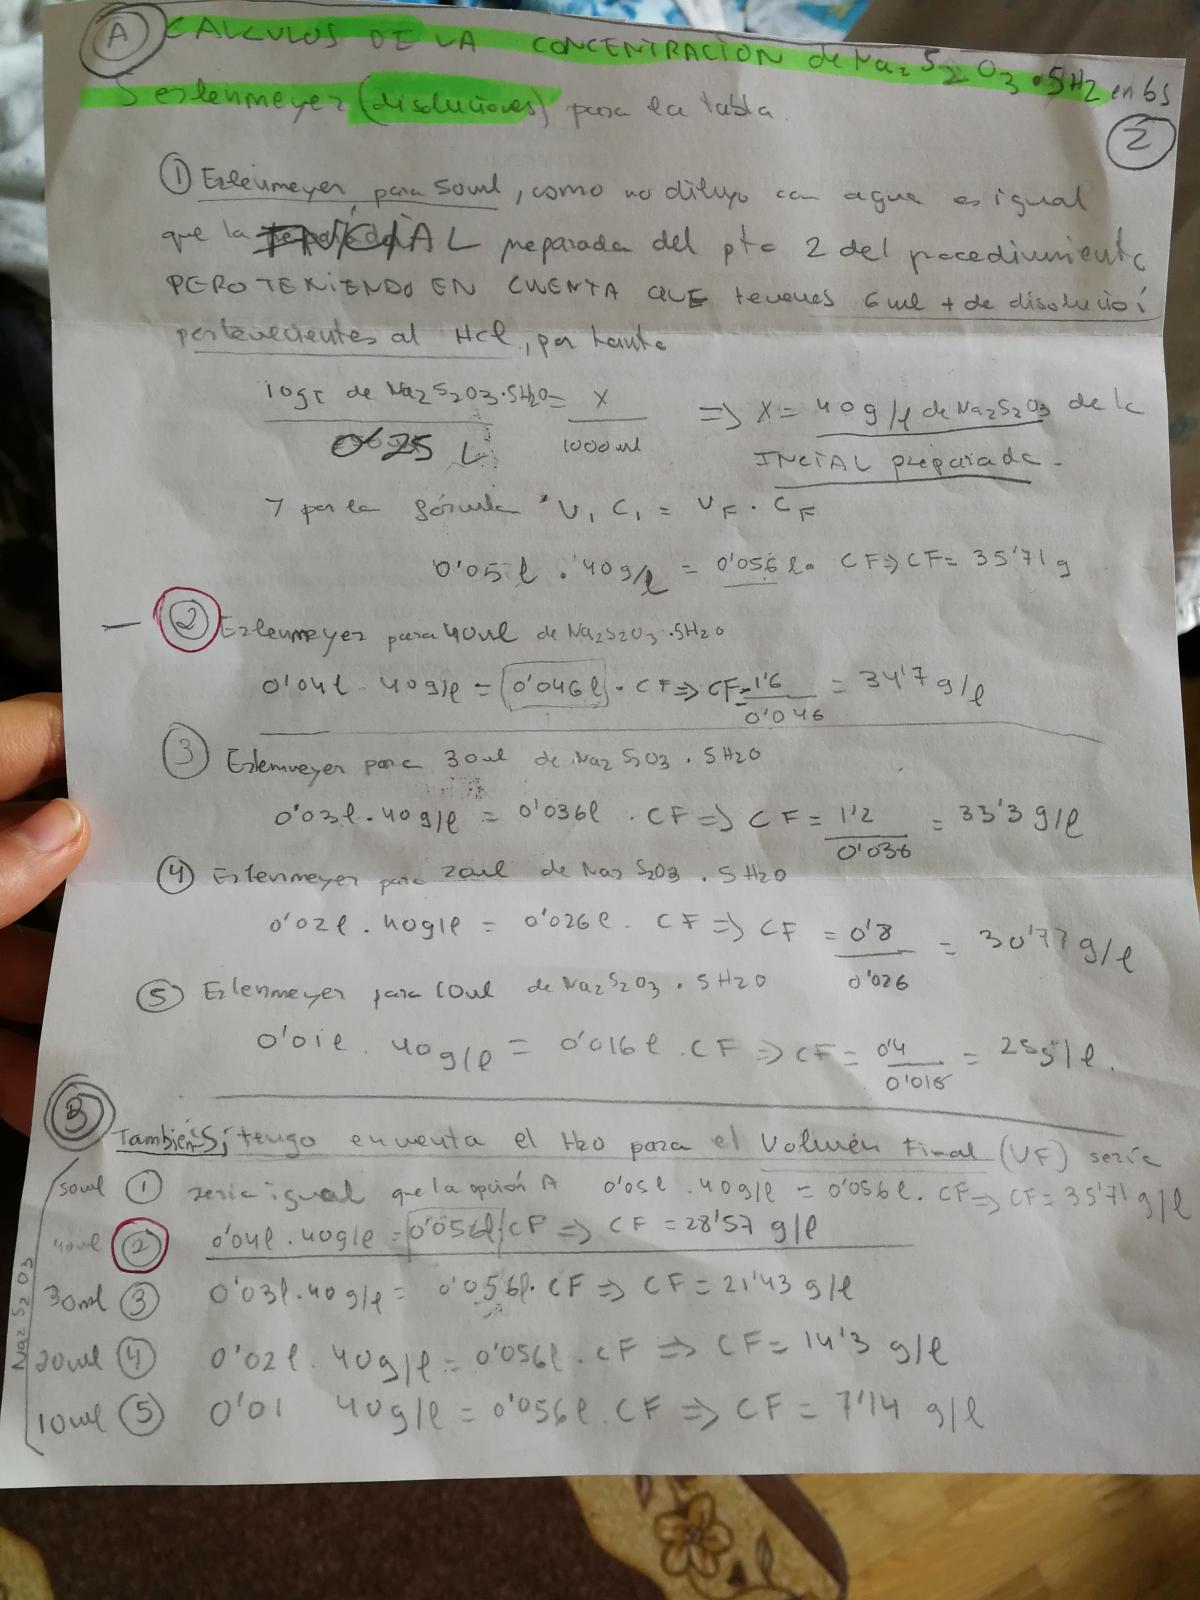 A CALCULOS DE LA CONCENTRACION de Na2 S2 O3 • 5H2 en los
5 erlenmeyer (disoluciones) para la tabla.
2
① Erlenmeyer para 50ml, como no diluyo con agua es igual
que la INICIAL preparada del pto 2 del procedimiento
PERO TENIENDO EN CUENTA QUE tenemos 6 ml + de disolució
pertenecientes al HCl, por tanto
10gr de Na2S2O3·5H2O = X => X = 40g/l de Na2S2O3 de la
0'25 L 1000ml INICIAL preparada.
Y por la fórmula V1 C1 = VF · CF
0'05 l · 40g/l = 0'056 l · CF => CF = 35'71 g
② Erlenmeyer para 40ml de Na2S2O3 ·5H2O
0'04l · 40g/l = 0'046l · CF => CF = 1'6 = 34'7 g/l
0'046
③ Erlenmeyer para 30ml de Na2 S2O3 . 5H2O
0'03l · 40g/l = 0'036l · CF => CF = 1'2 = 33'3 g/l
0'036
④ Erlenmeyer para 20ml de Na2 S2O3 . 5H2O
0'02l . 40g/l = 0'026l . CF => CF = 0'8 = 30'77 g/l
0'026
⑤ Erlenmeyer para 10ml de Na2S2O3 . 5H2O
0'01l . 40g/l = 0'016l . CF => CF = 0'4 = 25g/l.
0'016
B
También Si tengo en cuenta el H2O para el Volumén Final (VF) sería
50ml ① sería igual que la opción A 0'05l . 40g/l = 0'056l . CF => CF = 35'71 g/l
40ml ② 0'04l . 40g/l = 0'056l · CF => CF = 28'57 g/l
30ml ③ 0'03l . 40g/l = 0'056l · CF => CF = 21'43 g/l
20ml ④ 0'02l . 40g/l = 0'056l . CF => CF = 14'3 g/l
10ml ⑤ 0'01 40g/l = 0'056l . CF => CF = 7'14 g/l
Na2 S2 O3